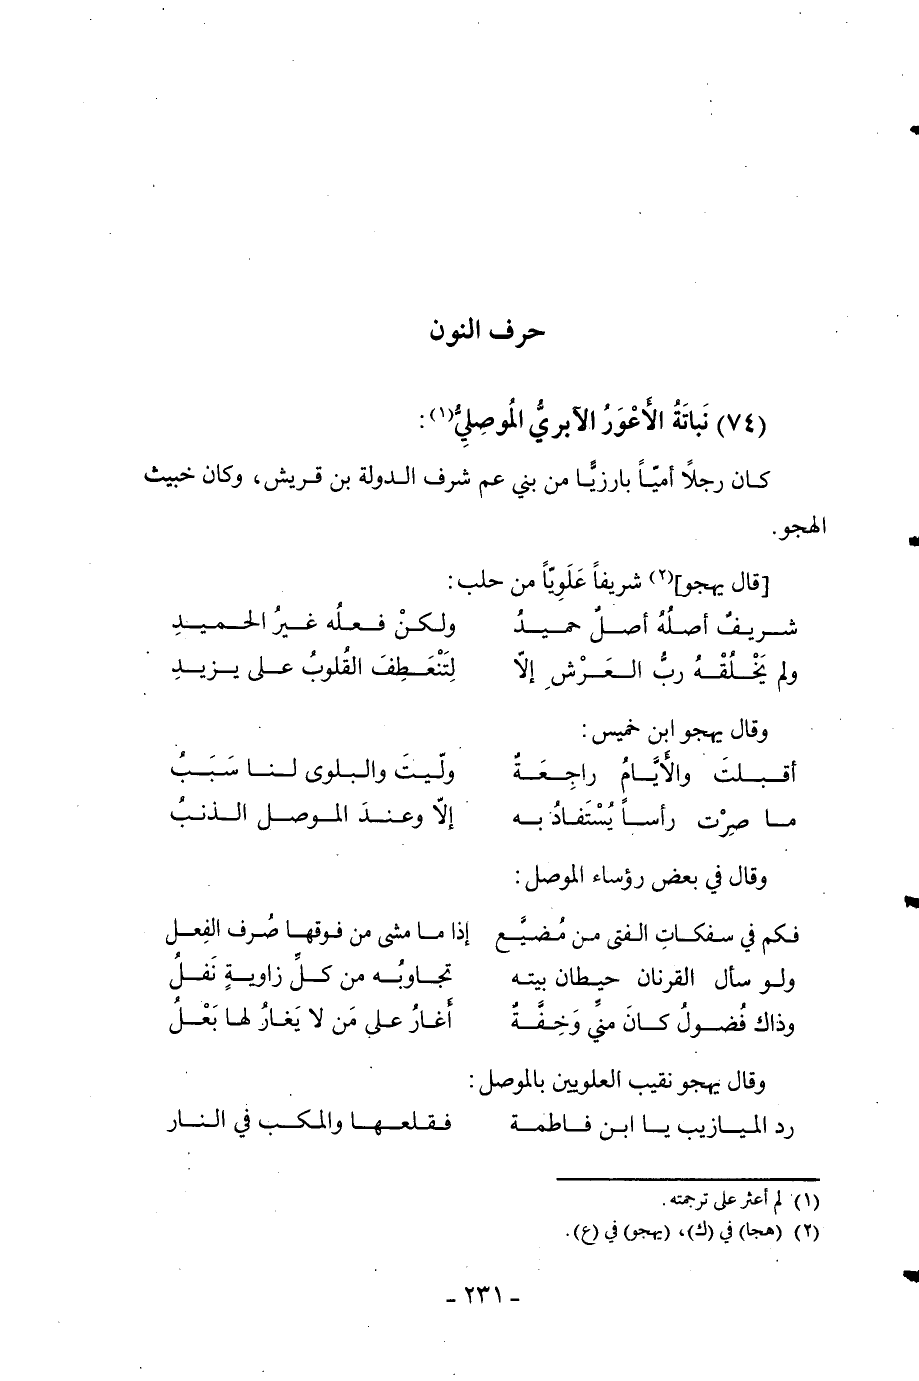 حرف النون
(٧٤) نَباتَةُ الأَعْوَرُ الآبريُّ المُوصِليُّ(١):
كان رجلاً أميّاً بارزيًّا من بني عم شرف الدولة بن قريش، وكان خبيث
الهجو.
[قال يهجو](٢) شريفاً عَلَويّاً من حلب:
شريفٌ أصلُهُ أصلٌ حميدُ ولكنْ فعلُه غيرُ الحميدِ
ولم يَخْلُقْهُ ربُّ العَرْشِ إلاّ لِتَنْعَطِفَ القُلوبُ على يزيدِ
وقال يهجو ابن خميس:
أقبلتَ والأيَّامُ راجِعَةٌ ولّيتَ والبلوى لنا سَبَبُ
ما صِرْت رأساً يُسْتَفادُ به إلاّ وعندَ الموصلِ الذنبُ
وقال في بعض رؤساء الموصل:
فكم في سفكات الفتى من مُضيَّعٍ إذا ما مشى من فوقها صُرف الفِعلُ
ولو سأل القرنان حيطان بيته تجاوبُه من كلِّ زاويةٍ نَغلُ
وذاك فُضولٌ كانَ منيِّ وَخِفَّةٌ أَغارُ على مَن لا يَغارُ لها بَعْلُ
وقال يهجو نقيب العلويين بالموصل:
رد الميازيب يا ابن فاطمة فقلعها والمكب في النار
(١) لم أعثر على ترجمته.
(٢) (هجا) في (ك)، (يهجو) في (ع).
- ٢٣١ -